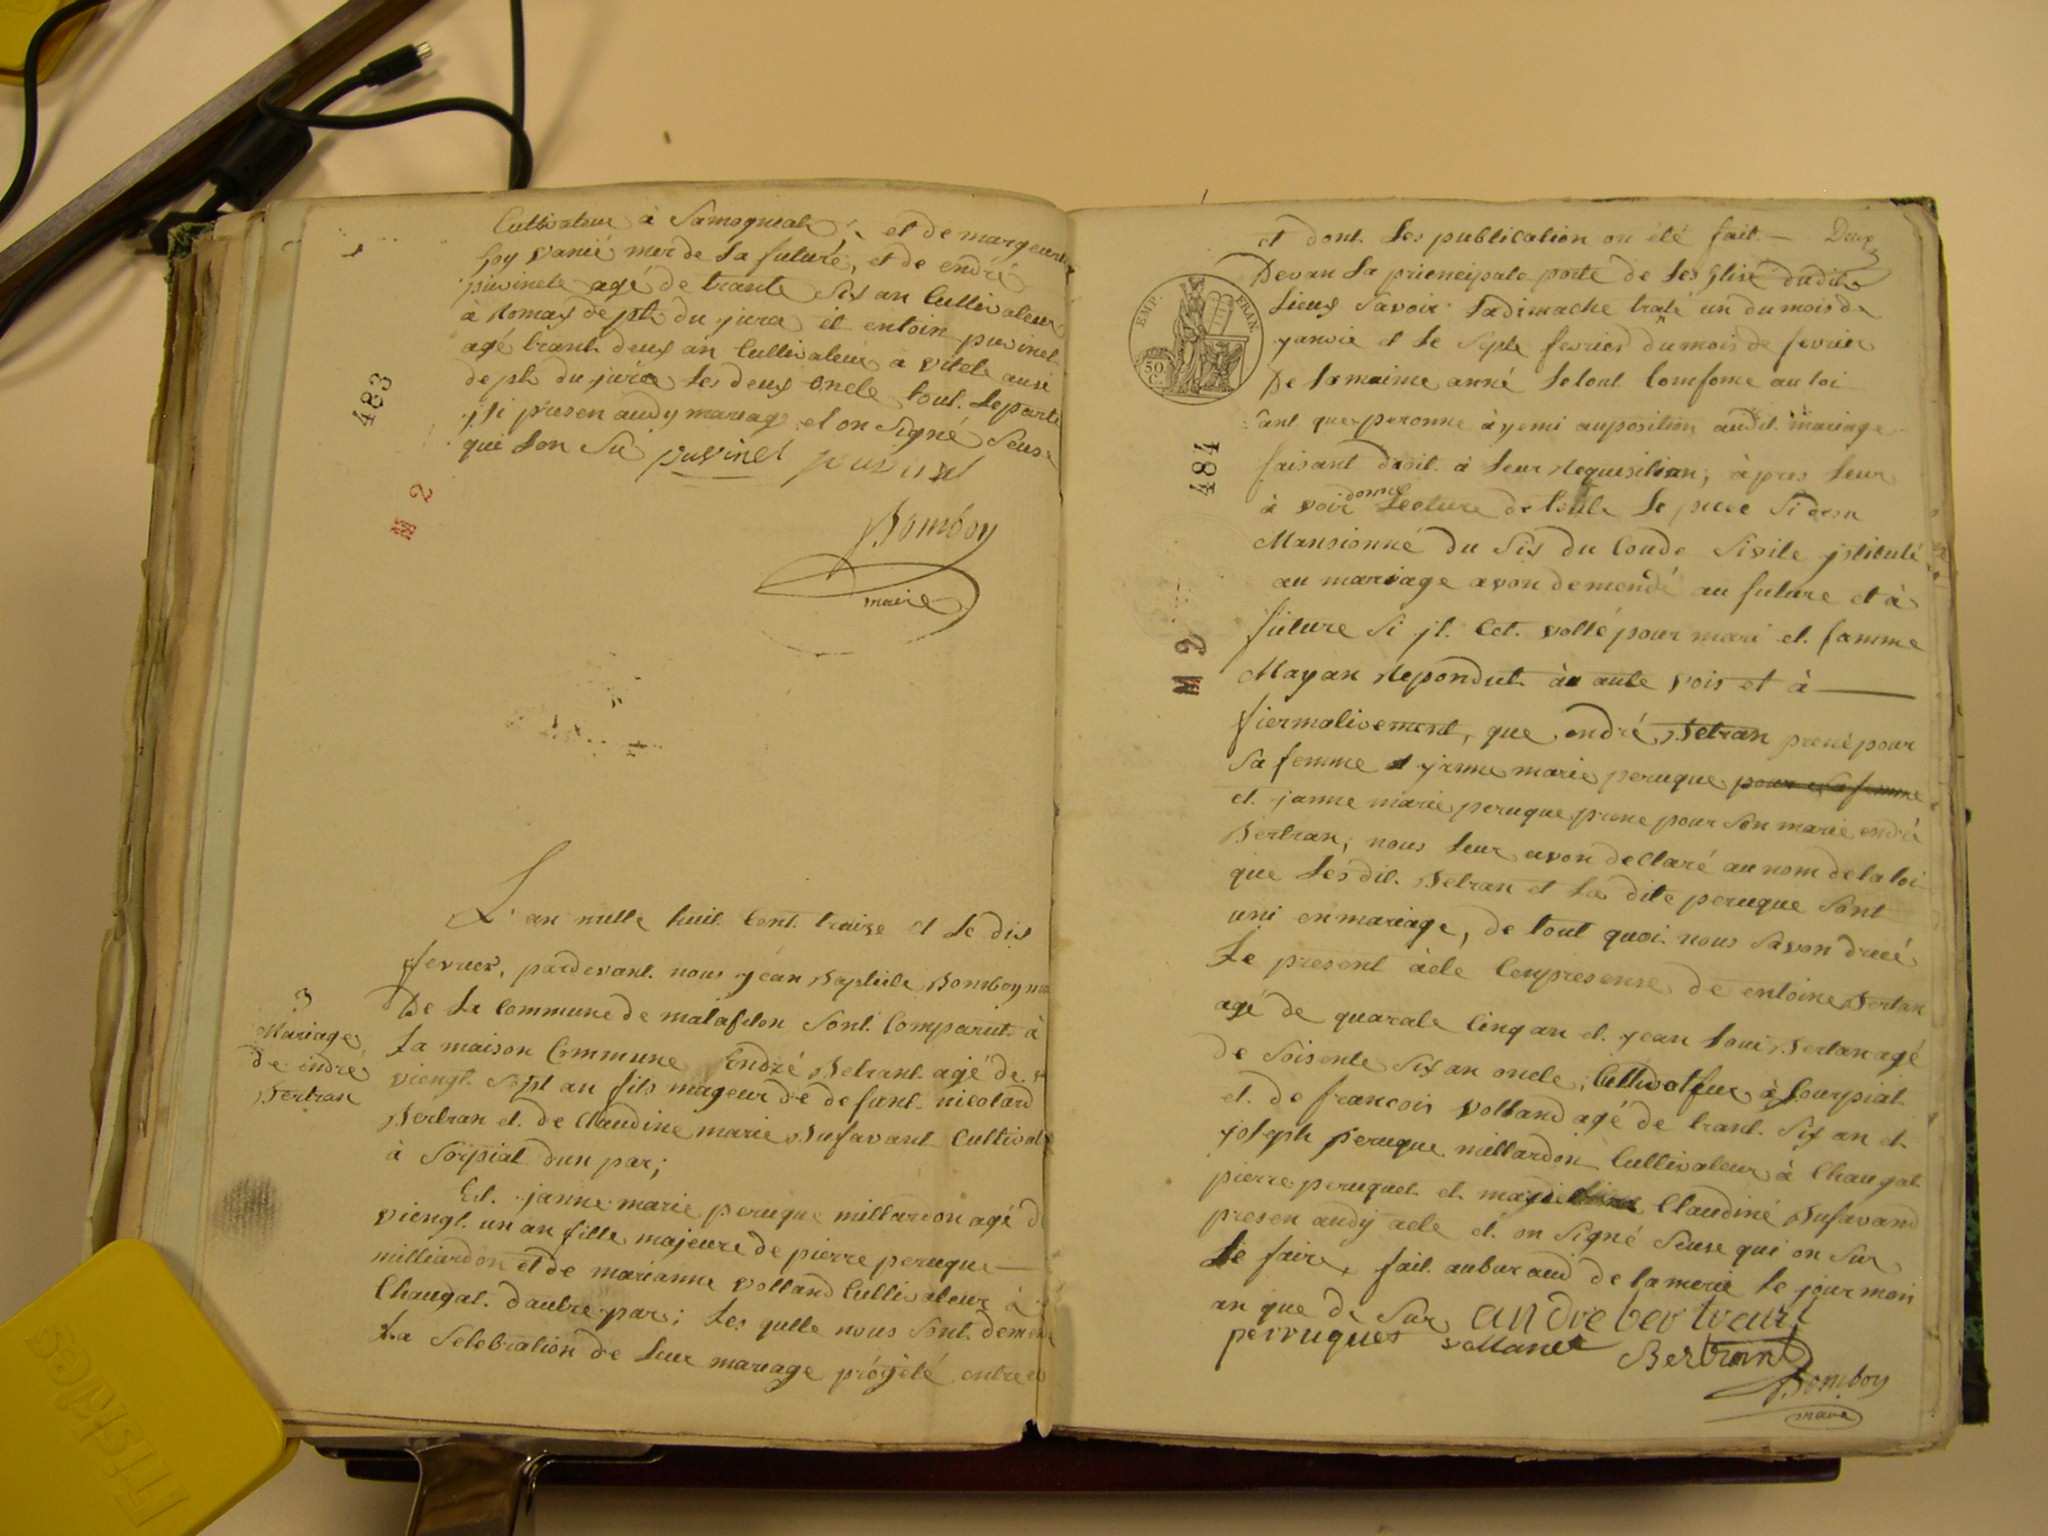 Cultivateur à Samogniat et de margeurit
foy vanié mer de la futuré, et de endré
puvinele agé de trante six an Cultivateur
à Romax depte du jura et entoin puvinel
agé trant deux an Cultivateur a vitele ausi
depte du jura Les deux oncle tout. Le partu
jsi presen audy mariage et on Signé Seus
qui Lon Su puvinel puvinel
Bomboy
maire
483
M 2
L'an mille huit Cent. traize et Le dix
fevrier, pardevant nous yéan Baptiste Bomboy
De La Commune de matafelon Sont Comparut à
La maison Commune Endré Betrant agé de
viengt Sept an fils mageur de defunt nicolard
Bertran et. de Claudine marie Dufavant Cultivat
à Sorpiat dun par;
Et. janne marie peruque millardon agé d
viengt un an fille majeure de pierre peruque
milliardon et de marianne volland Cultivateur à
Chaugat. dautre par; Les qulle nous Sont demen
La Selebration de Leur mariage progété entre
3
Mariage
de endré
Bertran
et dont Les publication on été fait Deux
Devan La prieneipale porte de Les Glise dudit
Lieux Savoir Ladimache traté un du mois de
yanvie et Le Septe fevrier du mois de fevrier
De Lamaime anné Letout Comfome au loi
ant que peronne à yemi auposition audit mariage
faisant droit à Leur Requisitian; àpres Leur
à voir donné Lecture de toute Le piece Si desu
Mansionné du Six du Coude Sivile jstitulé
au mariage avon demendé au future et à
future Si jl. Cet. vollé pour mari et. famme
Mayan Repondut à aute vois et à
fiermativement, que endré Betran prené pour
Sa femme et yanne marie peruque pour Sa femme
et janne marie peruque prene pour Son marie endré
Bertran; nous Leur avon dellaré au nom de la loi
que Lesdit. Betran et La dite peruque Sont
uni en mariage, de tout quoi nous Savon dreé
Le present àcte Cenpresense de entoine Bertran
agé de quarate Cinq an et. yean Loui Bertan agé
de Soisente Six an oncle, Cultivateur à Courpiat
et. de francois volland agé de trant Six an et
joseph peruque millardon Cultivateur à Chaugat
pierre peruquet et. Claudiné Dufavand
presen audy acte et. on Signé Seuse qui on Su
Le faire, fait. aubur aud de lamerie Le jour moin
an que de Sur andre bertrant
perruques vollanet Bertrant
Bomboy
maire
EMP. FRAN.
50 C.
484
M 2
Tistyles